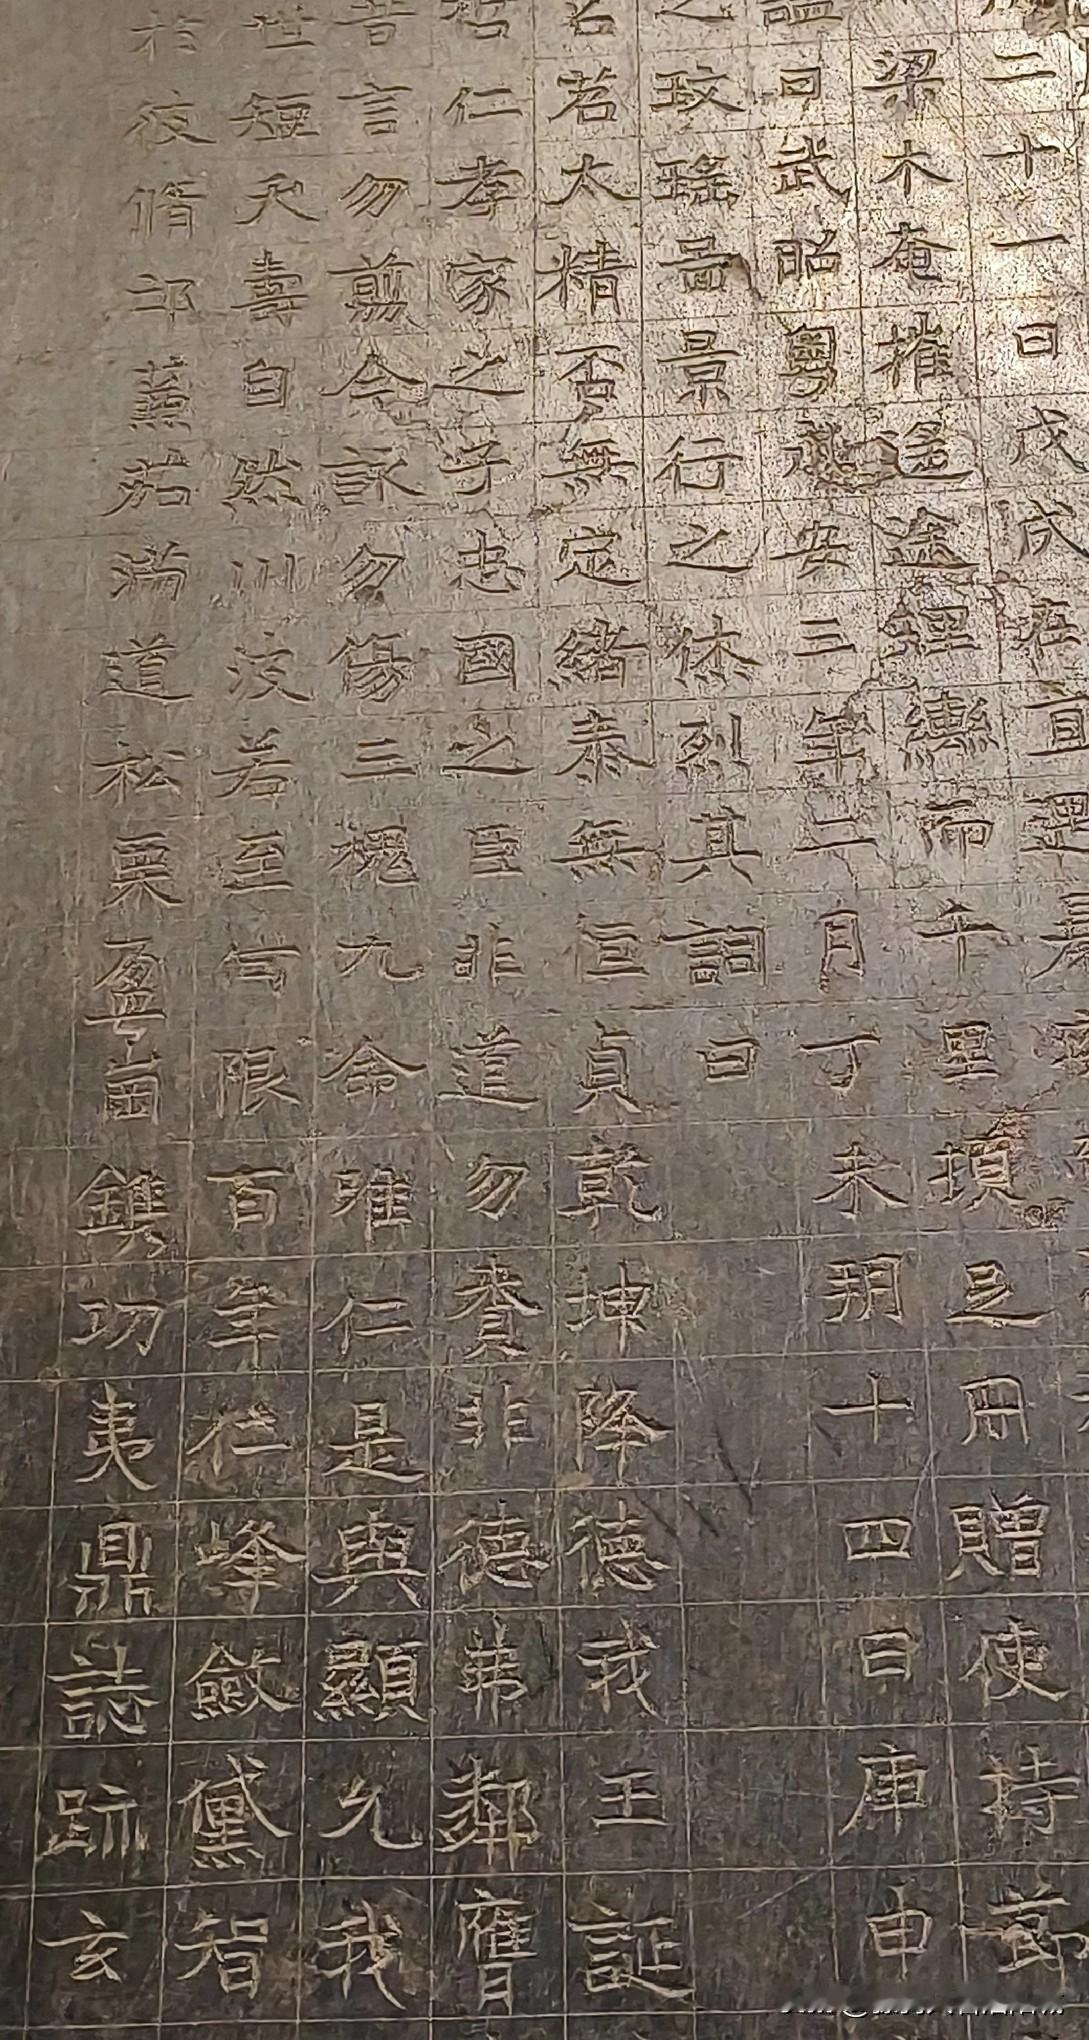 二十一日戊戌在直
梁木奄摧遙途鏗轡而千里頓足用贈使持節
諡曰武昭粵永安三年二月丁未朔十四日庚申
之玟瑤啚景行之休烈其詞曰
若太精否無定緒泰無恒貞乾坤降德我王誕
仁孝家之子忠國之臣非道勿賚非德弗鄰膺
昔言勿剪今詠勿傷三槐九命唯仁是與顯允我
世短夭壽自然川沒若至限百年峰斂黛智
於彼脩邙蕪茹滿道松栗盈崗鐫功夷鼎誌跡玄